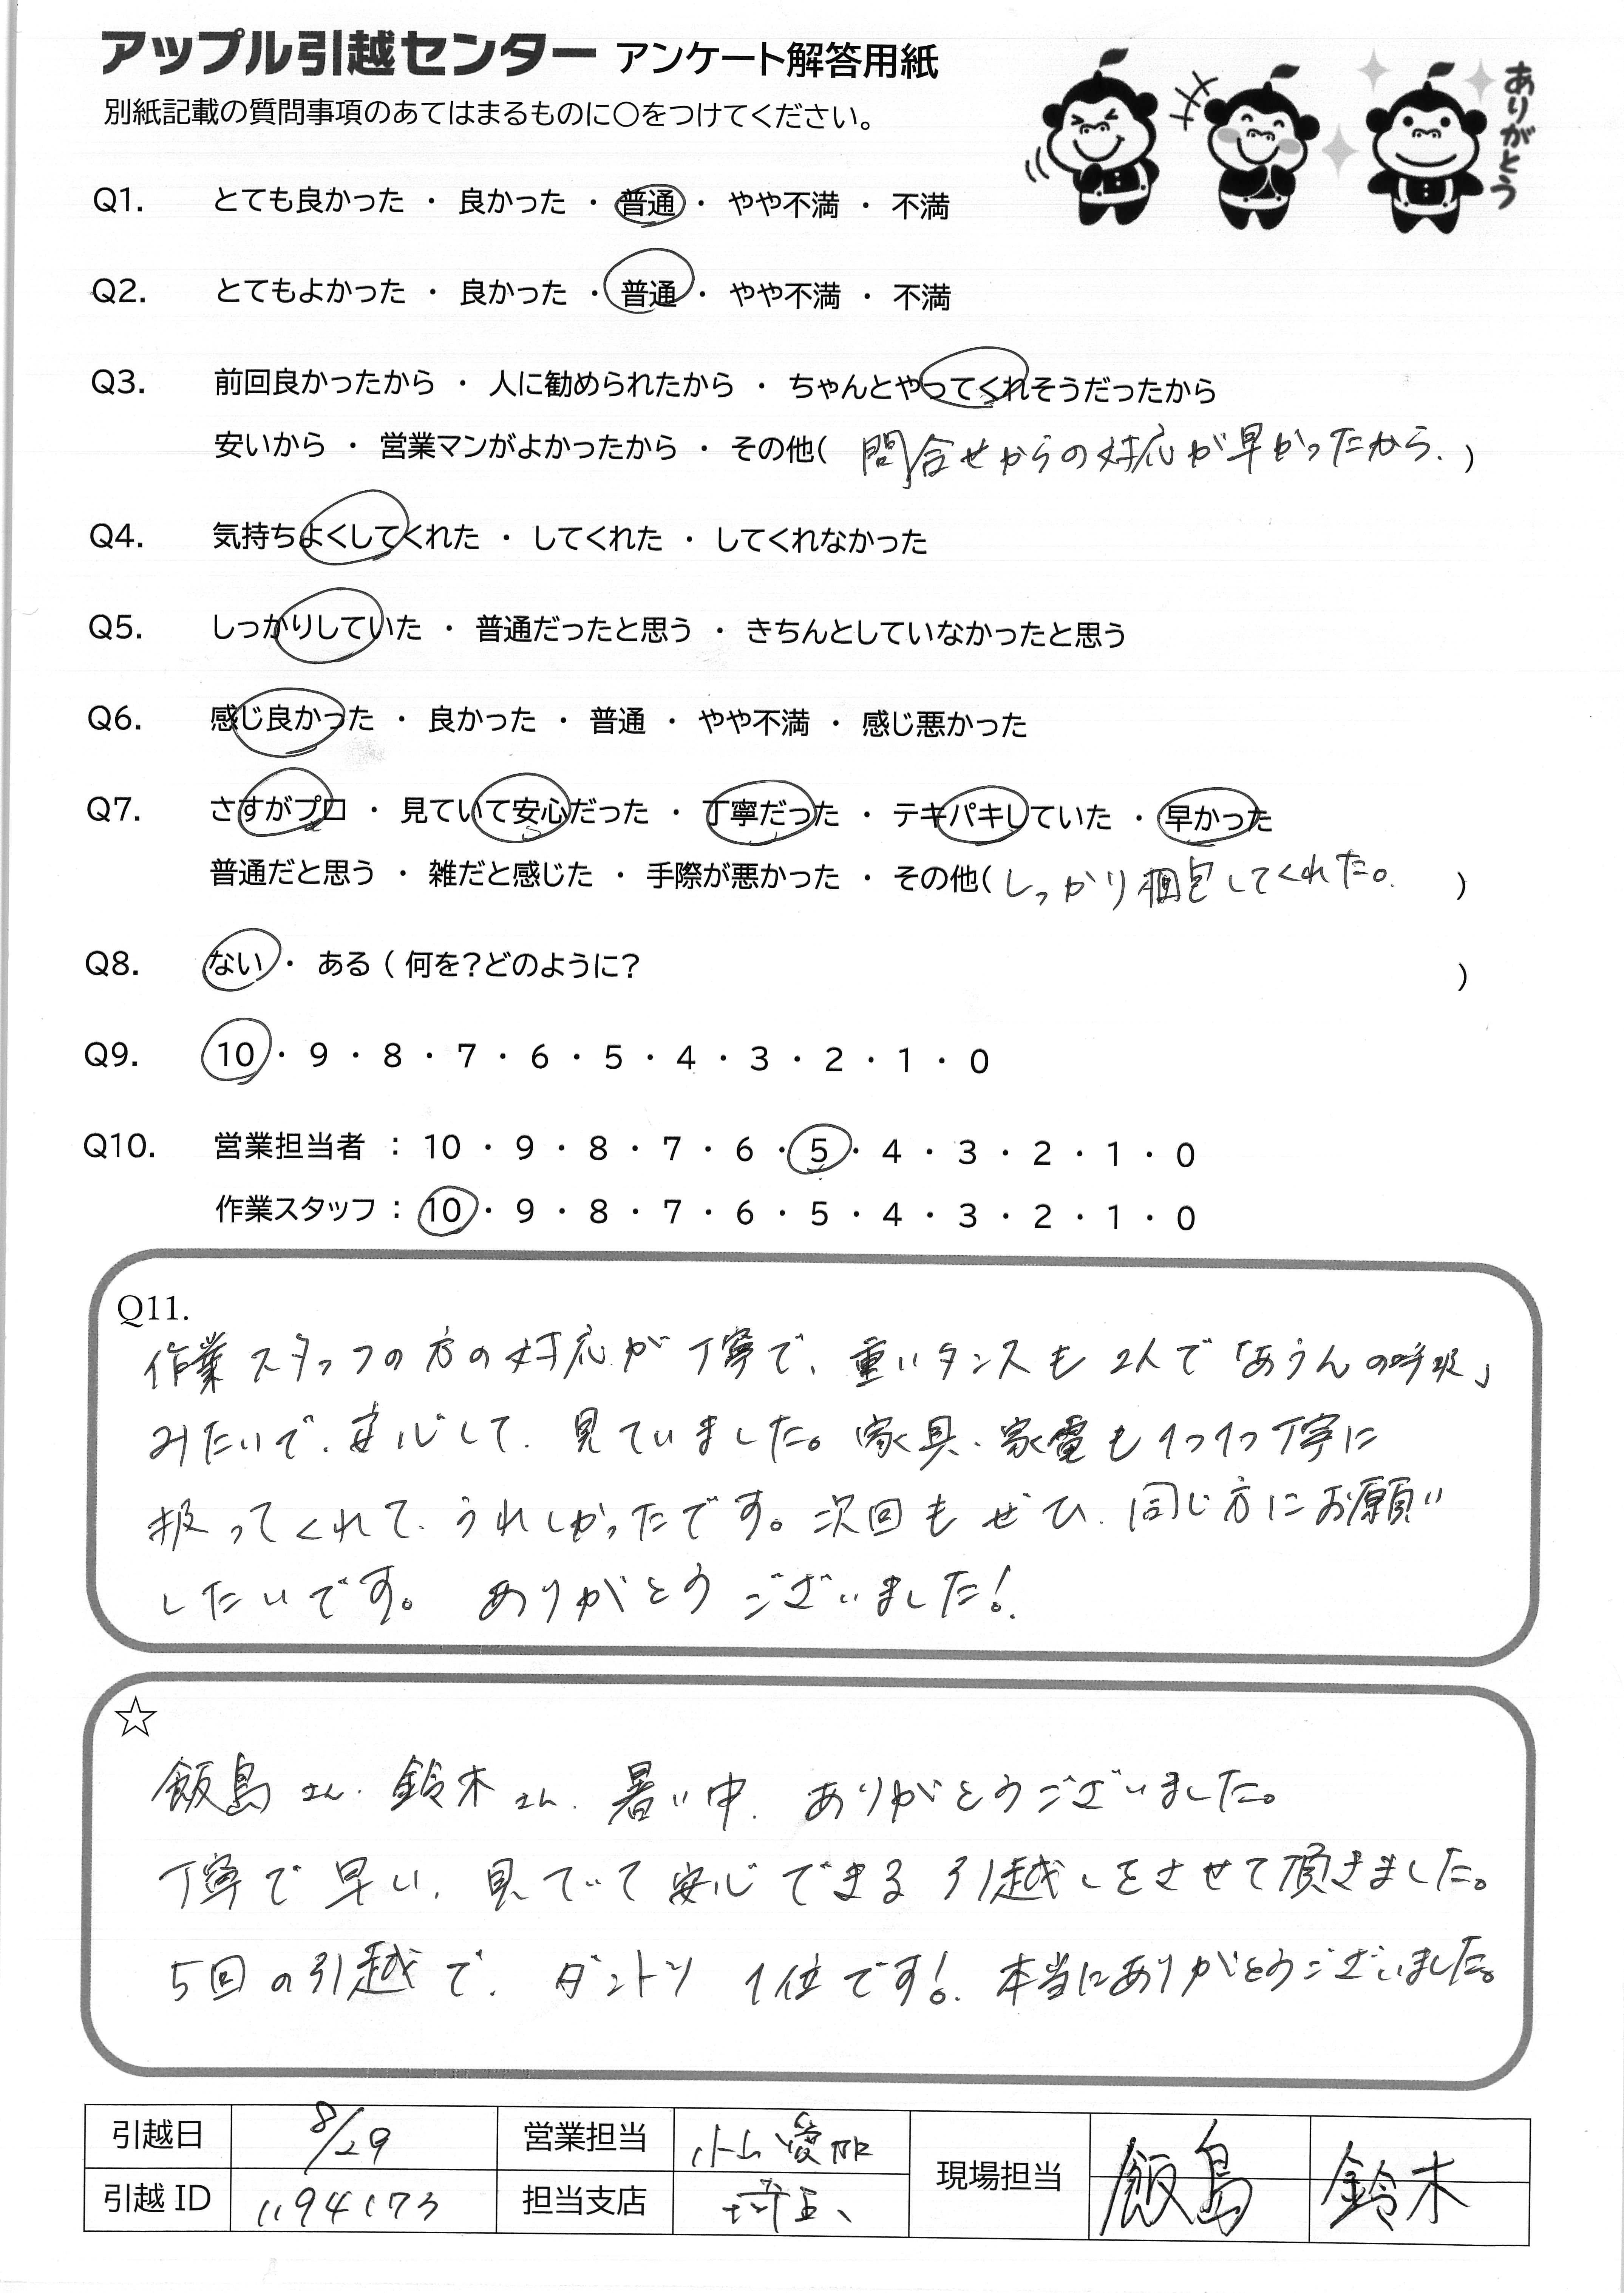 アップル引越センター アンケート解答用紙
別紙記載の質問事項のあてはまるものに○をつけてください。
ありがとう
Q1. とても良かった ・ 良かった ・ 普通 ・ やや不満 ・ 不満
Q2. とてもよかった ・ 良かった ・ 普通 ・ やや不満 ・ 不満
Q3. 前回良かったから ・ 人に勧められたから ・ ちゃんとやってくれそうだったから
安いから ・ 営業マンがよかったから ・ その他( 問合せからの対応が早かったから. )
Q4. 気持ちよくしてくれた ・ してくれた ・ してくれなかった
Q5. しっかりしていた ・ 普通だったと思う ・ きちんとしていなかったと思う
Q6. 感じ良かった ・ 良かった ・ 普通 ・ やや不満 ・ 感じ悪かった
Q7. さすがプロ ・ 見ていて安心だった ・ 丁寧だった ・ テキパキしていた ・ 早かった
普通だと思う ・ 雑だと感じた ・ 手際が悪かった ・ その他( しっかり梱包してくれた。 )
Q8. ない ・ ある ( 何を?どのように? )
Q9. 10 ・ 9 ・ 8 ・ 7 ・ 6 ・ 5 ・ 4 ・ 3 ・ 2 ・ 1 ・ 0
Q10. 営業担当者 : 10 ・ 9 ・ 8 ・ 7 ・ 6 ・ 5 ・ 4 ・ 3 ・ 2 ・ 1 ・ 0
作業スタッフ : 10 ・ 9 ・ 8 ・ 7 ・ 6 ・ 5 ・ 4 ・ 3 ・ 2 ・ 1 ・ 0
Q11.
作業スタッフの方の対応が丁寧で、重いタンスも2人で「あうんの呼吸」
みたいで、安心して、見ていました。家具、家電も1つ1つ丁寧に
扱ってくれて、うれしかったです。次回もぜひ、同じ方にお願い
したいです。 ありがとうございました!
☆
飯島さん、鈴木さん、暑い中、ありがとうございました。
丁寧で早い、見ていて安心できる引越しをさせて頂きました。
5回の引越で、ダントツ 1位です! 本当にありがとうございました。
引越日 8/29 営業担当 現場担当 飯島 鈴木
引越ID 1194173 担当支店 埼玉